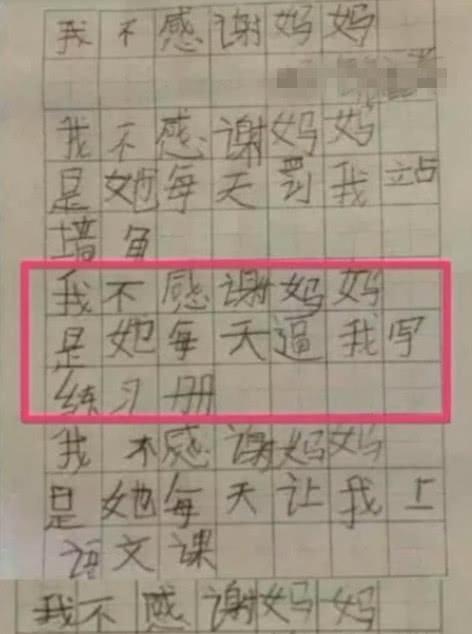 我不感谢妈妈
我不感谢妈妈
是她每天罚我站
墙角
我不感谢妈妈
是她每天逼我写
练习册
我不感谢妈妈
是她每天让我上
语文课
我不感谢妈妈